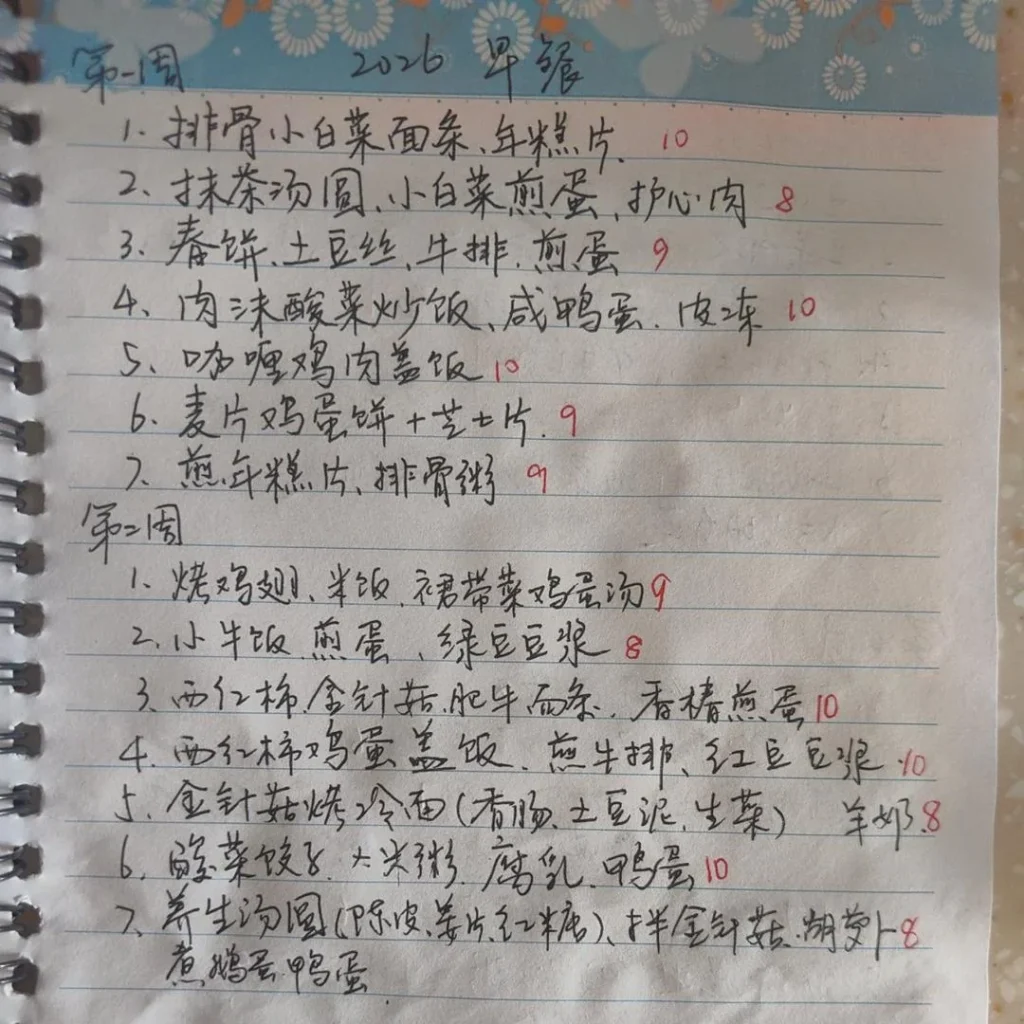 第一周 2026 早餐
1. 排骨小白菜面条、年糕片. 10
2、抹茶汤圆、小白菜煎蛋、护心肉 8
3. 春饼、土豆丝、牛排、煎蛋 9
4、肉沫酸菜炒饭、咸鸭蛋、皮冻 10
5、咖喱鸡肉盖饭 10
6. 麦片鸡蛋饼+芝士片. 9
7. 煎年糕片、排骨粥 9
第二周
1. 烤鸡翅、米饭、裙带菜鸡蛋汤 9
2. 小牛饭 煎蛋、绿豆豆浆 8
3. 西红柿.金针菇.肥牛面条. 香椿煎蛋 10
4. 西红柿鸡蛋盖饭、煎牛排、红豆豆浆 10
5. 金针菇烤冷面(香肠、土豆泥、生菜) 羊奶. 8
6. 酸菜饺子. 大米粥. 腐乳. 鸭蛋 10
7. 养生汤圆(陈皮、姜片、红糖)、拌金针菇.胡萝卜 8
煮鹅蛋鸭蛋